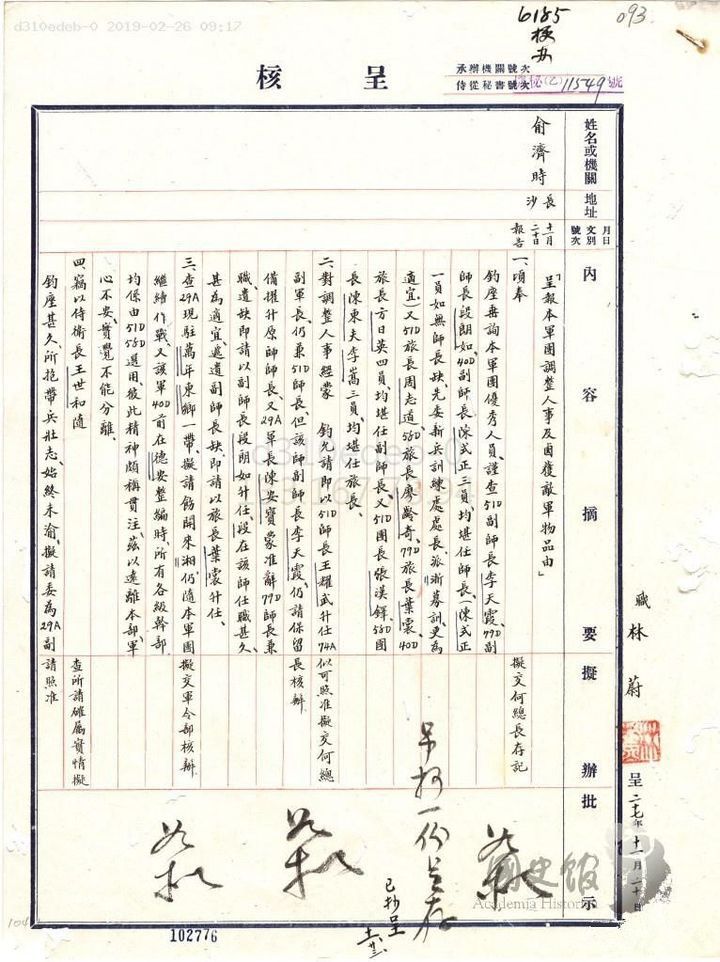 d310edeb-0 2019-02-26 09:17
6185
093.
呈核
承辦機關號次
侍從秘書號次
侍秘(乙)11549號
姓名或機關
地址
月日
文別
號次
內容摘要
擬辦
批示
俞濟時
長沙
十一月二十日
報告
「呈報本軍團調整人事及鹵獲敵軍物品由」
一、頃奉
鈞座垂詢本軍團優秀人員、謹查51D副師長李天霞、79D副
師長段朗如、40D副師長陳式正三員、均堪任師長、(陳式正
一員如無師長缺、先委新兵訓練處處長、派浙募訓、更為
適宜、)又51D旅長周志道、58D旅長廖齡奇、79D旅長葉裳、40D
旅長方日英四員均堪任副師長、又51D團長張漢鐸、58D團
長陳東夫、李嵩三員均堪任旅長、
二、對調整人事經蒙　鈞允請即以51D師長王耀武升任74A
副軍長、仍兼51D師長、但該師副師長李天霞仍請保留
備擢升原師師長、又29A軍長陳安寶蒙准辭79D師長兼
職、遺缺即請以副師長段朗如升任、段在該師任職甚久、
甚為適宜、遞遺副師長缺、即請以旅長葉裳升任、
三、查29A現駐萬年東鄉一帶、擬請飭開來湘、仍隨本軍團
繼續作戰、又該軍40D前在德安整編時、所有各級幹部
均係由51D58D選用、彼此精神頗稱貫注、茲以遠離本部、軍
心不安、實覺不能分離、
四、竊以侍衛長王世和隨
鈞座甚久、所抱帶兵壯志、始終未渝、擬請委為29A副
擬交何總長存記
似可照准擬交何總
長核辦
擬交軍令部核辦
查所請確屬實情擬
請照准
另抄一份呈存
已抄呈
職林蔚
呈二十七年十一月二十日
國史館
Academia Historica
102776